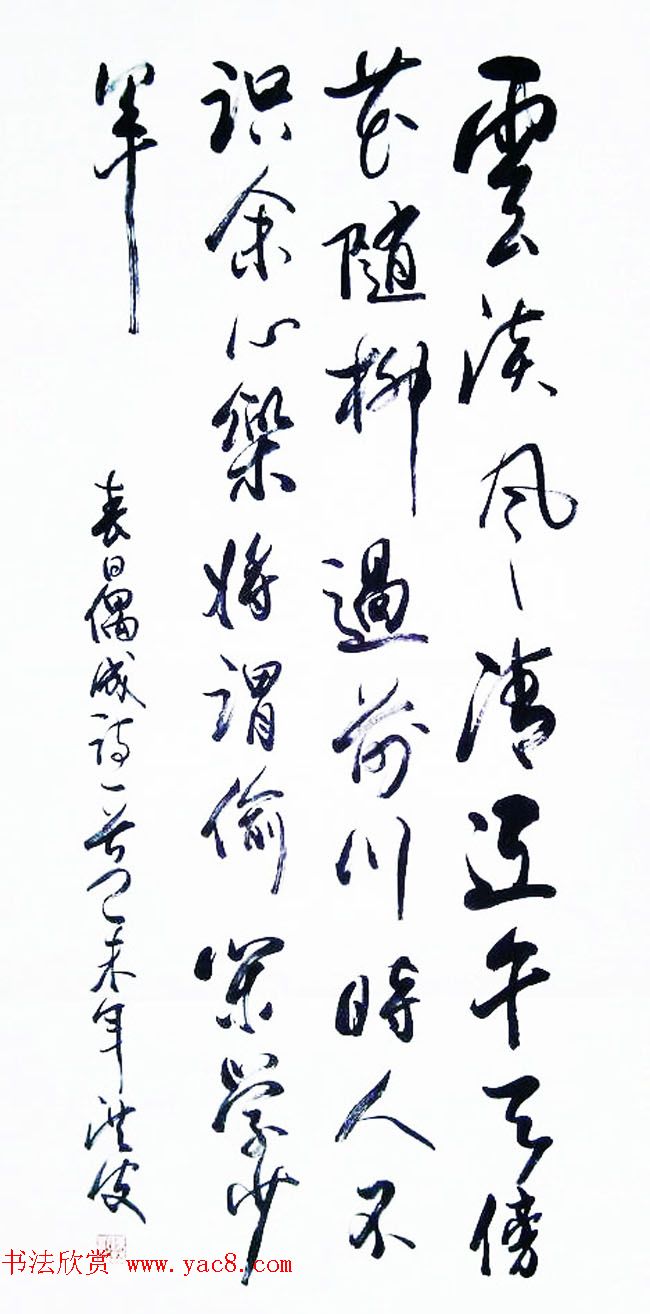 雲淡风清近午天傍
花随柳過前川時人不
识余心樂将謂偷閑學少
年
春日偶成詩一首乙未年洪
书法欣赏 www.yac8.com